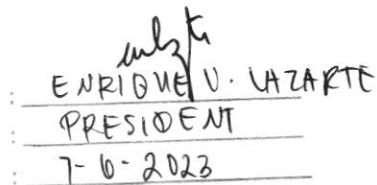 : ENRIQUE V. LAZARTE
: PRESIDENT
: 7-6-2023